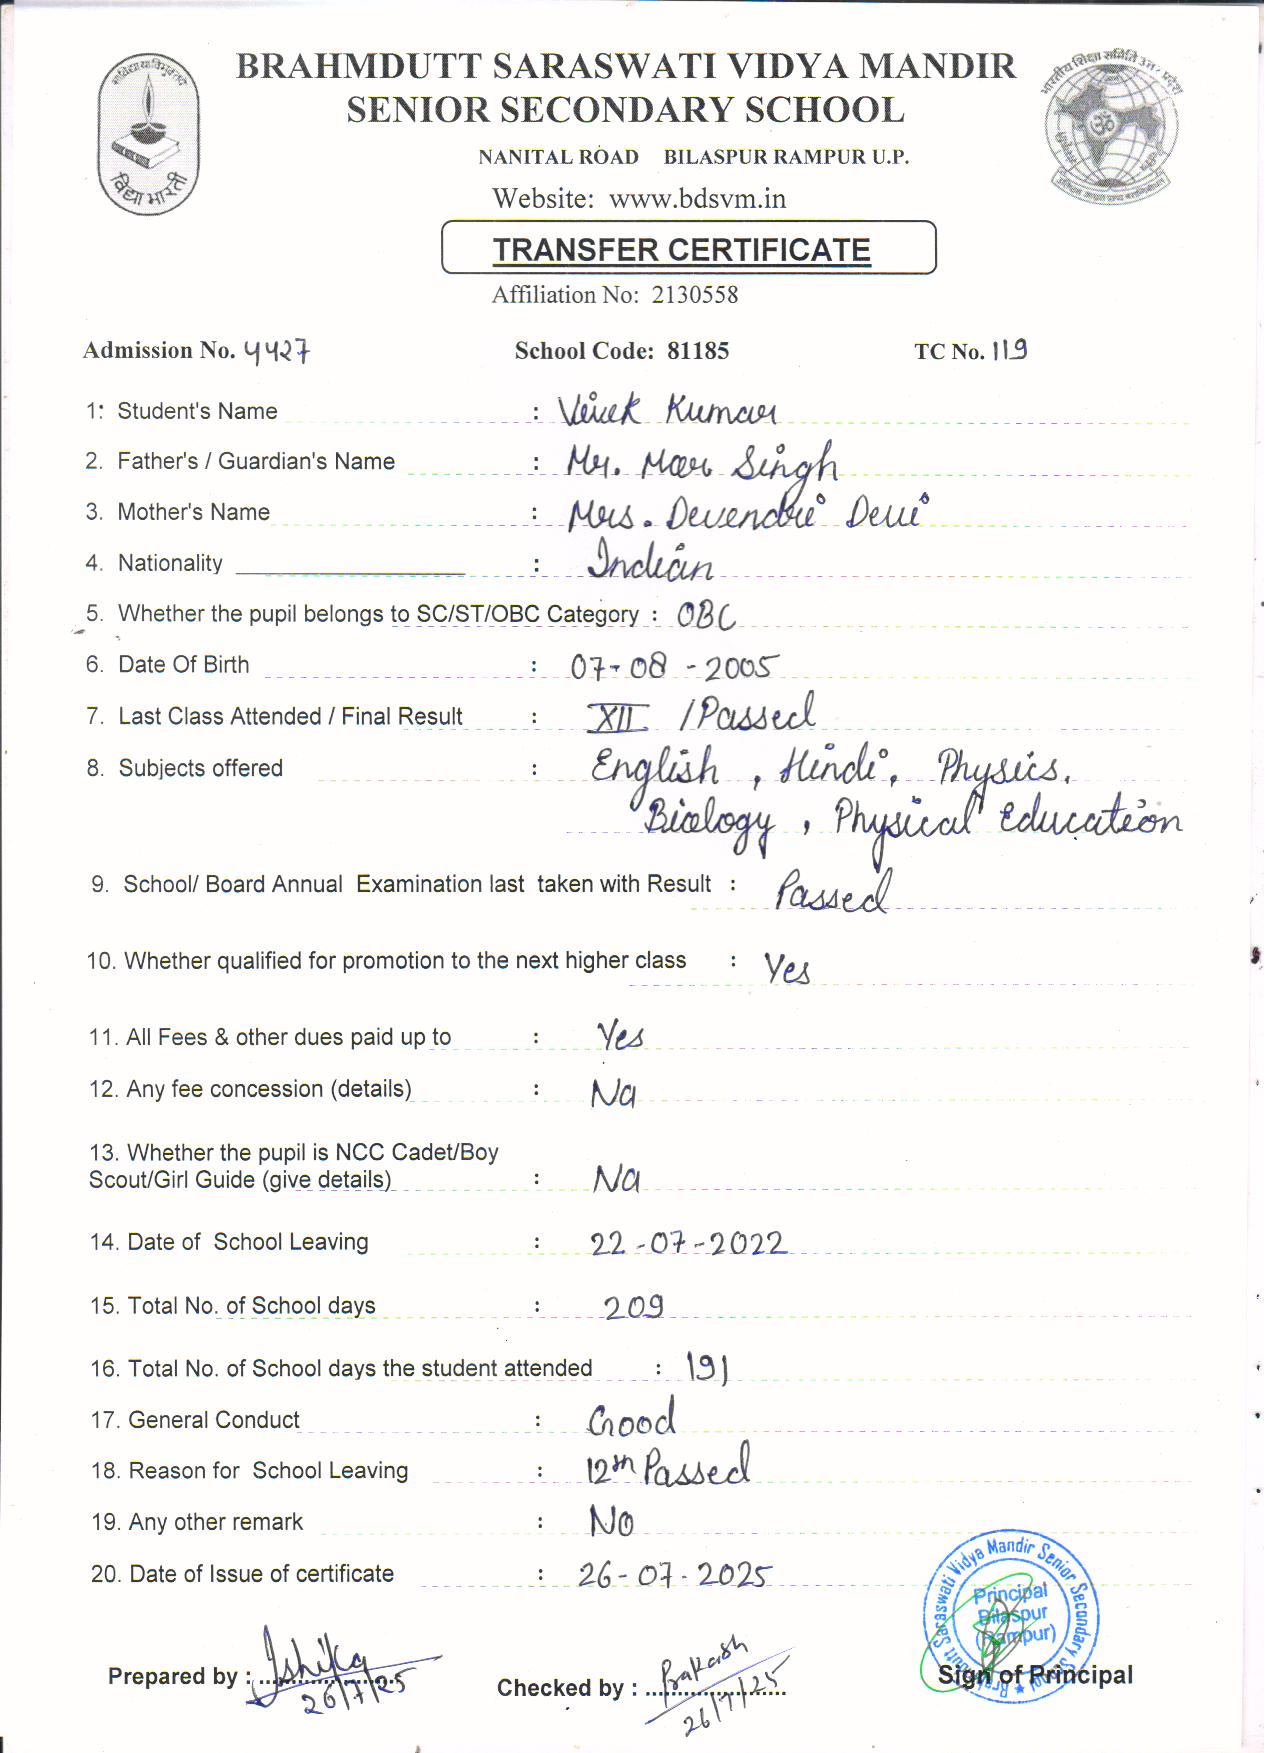 BRAHMDUTT SARASWATI VIDYA MANDIR
SENIOR SECONDARY SCHOOL
NANITAL ROAD BILASPUR RAMPUR U.P.
विद्या भारती
Website: www.bdsvm.in
TRANSFER CERTIFICATE
Affiliation No: 2130558
Admission No. 4427 School Code: 81185 TC No. 119
1: Student's Name : Vivek Kumar
2. Father's / Guardian's Name : Mr. Singh
3. Mother's Name : Mrs. Devendri Devi
4. Nationality : Indian
5. Whether the pupil belongs to SC/ST/OBC Category : OBC
6. Date Of Birth : 07-08-2005
7. Last Class Attended / Final Result : XII /Passed
8. Subjects offered : English, Hindi, Physics,
Biology, Physical Education
9. School/ Board Annual Examination last taken with Result : Passed
10. Whether qualified for promotion to the next higher class : Yes
11. All Fees & other dues paid up to : Yes
12. Any fee concession (details) : Na
13. Whether the pupil is NCC Cadet/Boy
Scout/Girl Guide (give details) : Na
14. Date of School Leaving : 22-07-2022
15. Total No. of School days : 209
16. Total No. of School days the student attended : 191
17. General Conduct : Good
18. Reason for School Leaving : 12th Passed
19. Any other remark : No
20. Date of Issue of certificate : 26-07-2025
Saraswati Vidya Mandir Senior Secondary School
Principal
Bilaspur
(Rampur)
Prepared by : Ishika Checked by : Prakash Sign of Principal
26/7/25 26/7/25